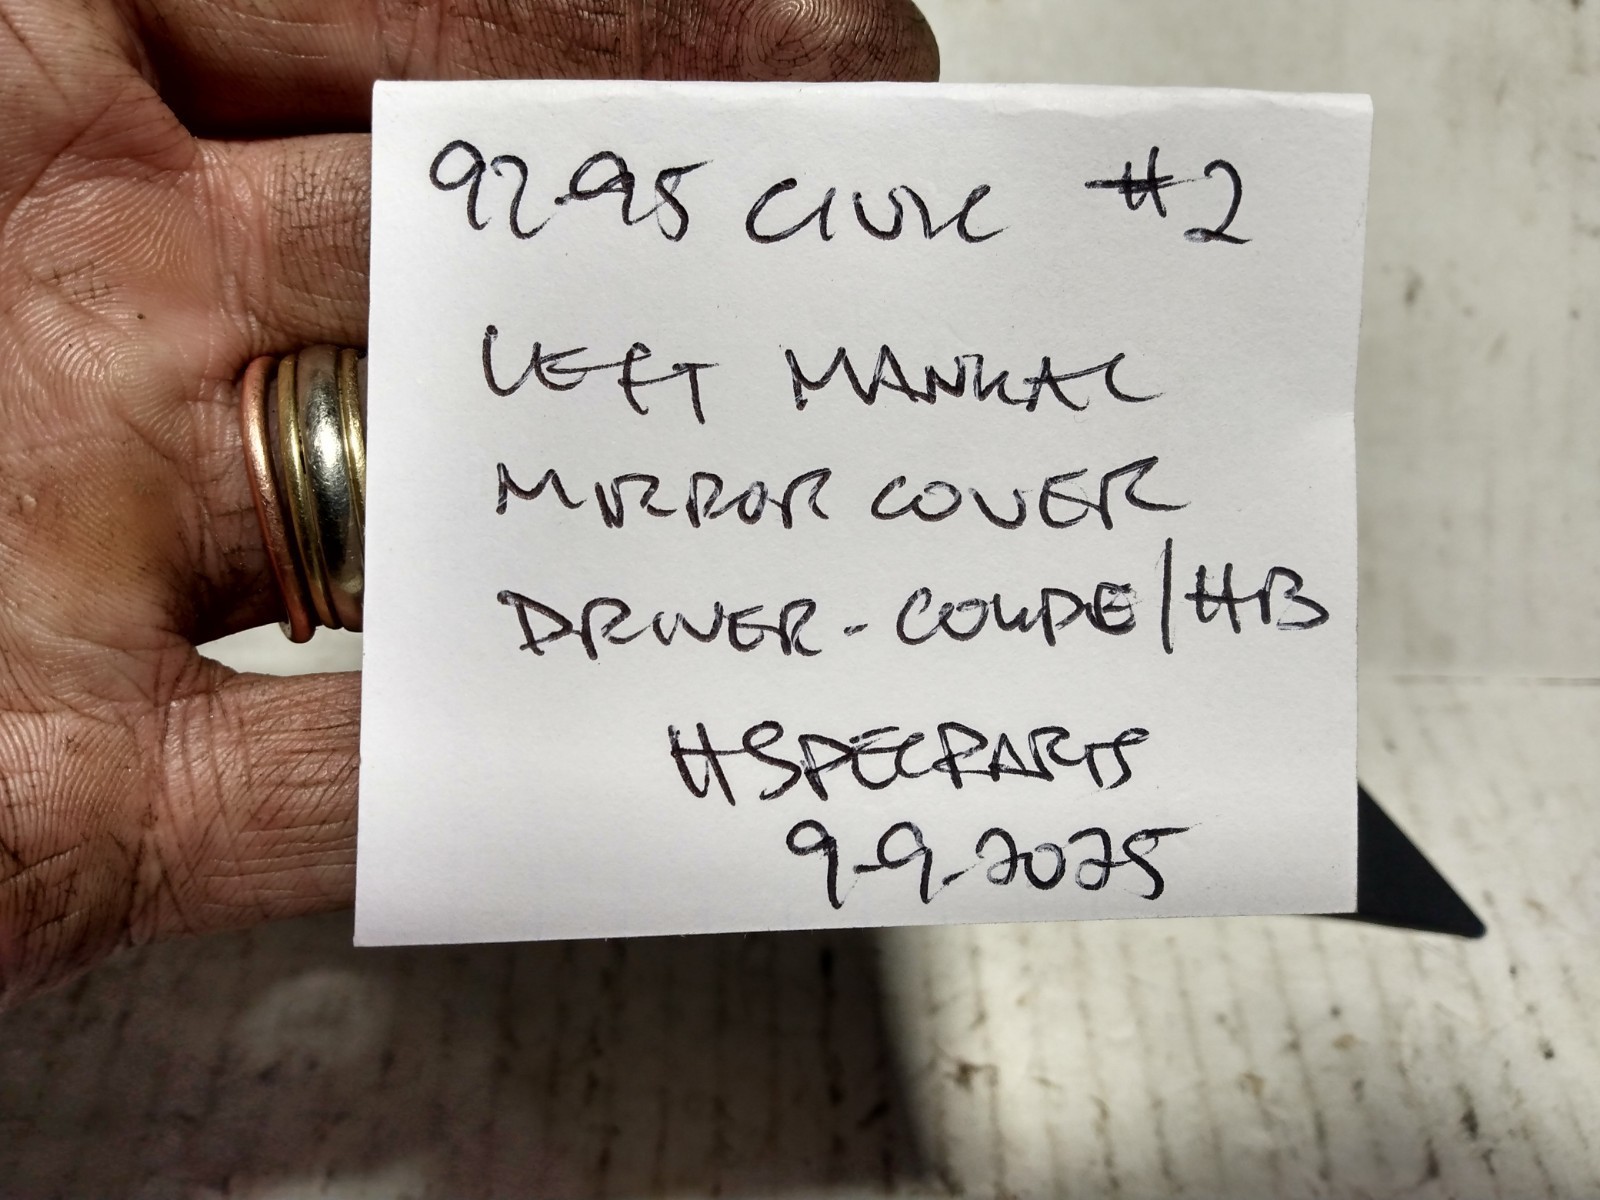 92-95 CIVIC #2
LEFT MANUAL
MIRROR COVER
DRIVER - COUPE/HB
HSPECPARTS
9-9-2025